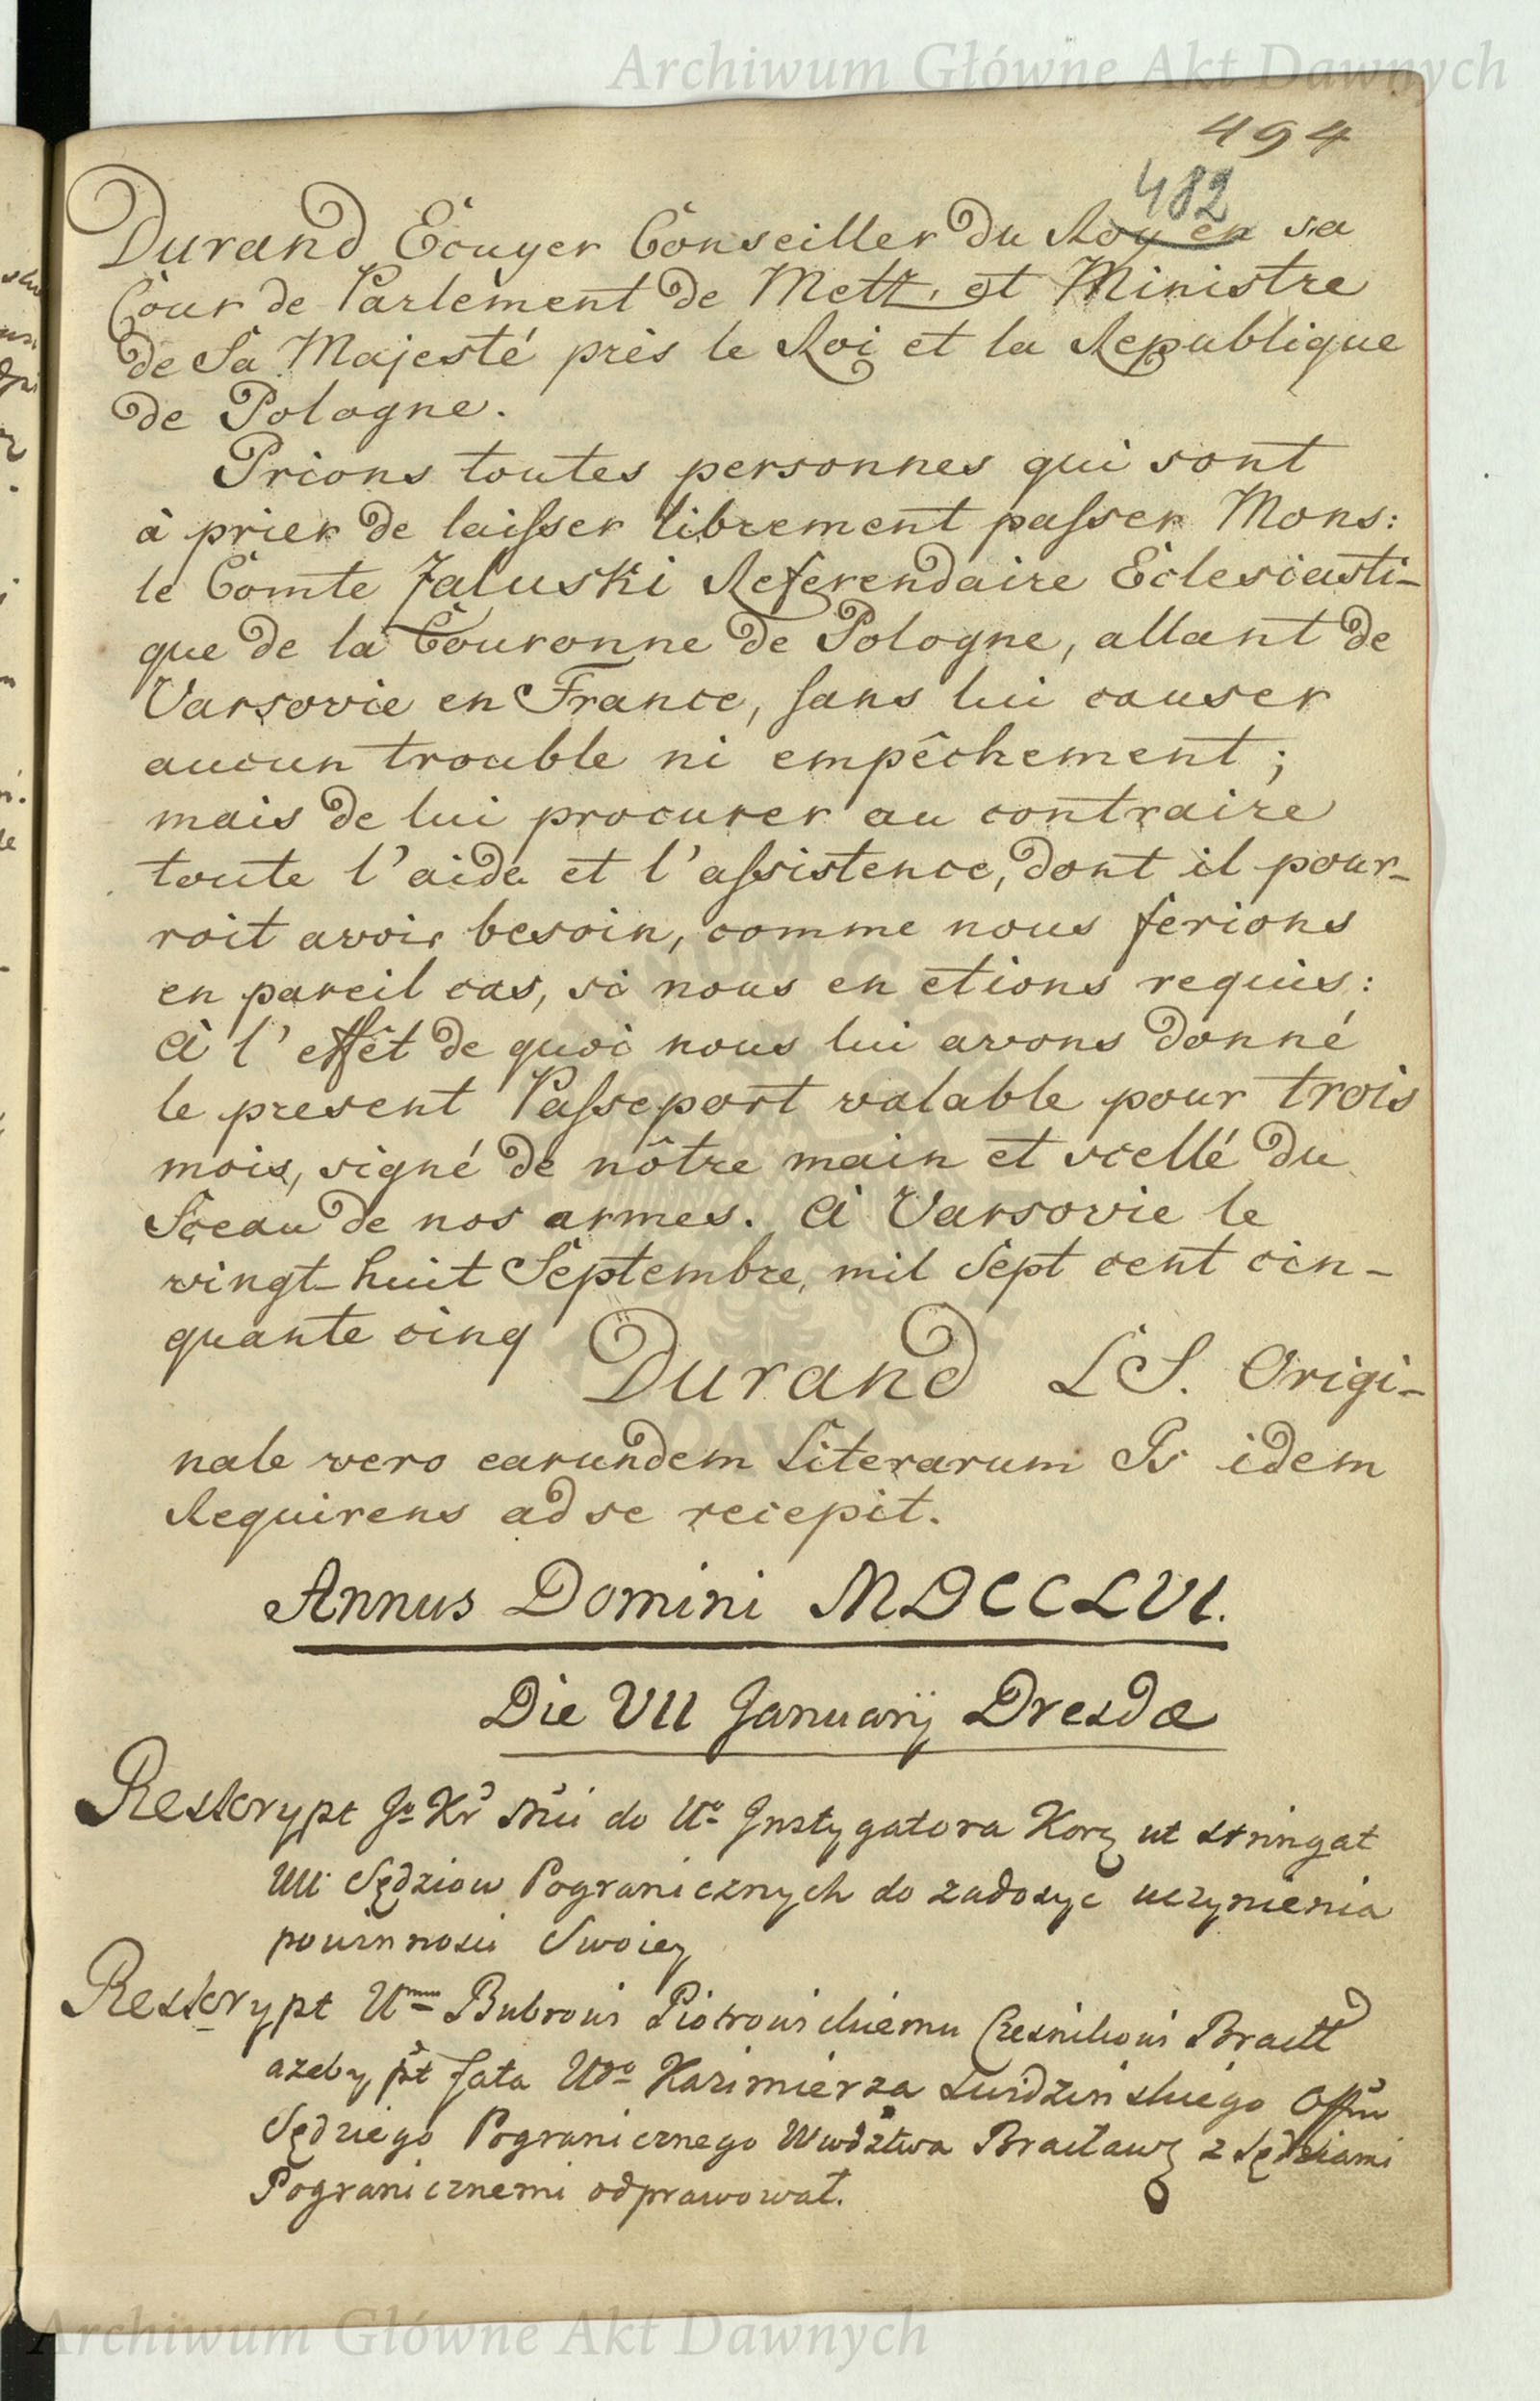 Archiwum Główne Akt Dawnych
494
482
Durand Ecuyer Conseiller du Roy en sa
Cour de Parlement de Metz, et Ministre
de Sa Majesté près le Roi et la Republique
de Pologne.
Prions toutes personnes qui sont
à prier de laisser librement passer Mons:
le Comte Zaluski Referendaire Eclesiasti-
que de la Couronne de Pologne, allant de
Varsovie en France, sans lui causer
aucun trouble ni empêchement;
mais de lui procurer au contraire
toute l'aide et l'assistence, dont il pour-
roit avoir besoin, comme nous ferions
en pareil cas, si nous en etions requis:
à l'effêt de quoi nous lui avons donné
le present Passeport valable pour trois
mois, signé de nôtre main et scellé du
Sceau de nos armes. à Varsovie le
vingt-huit Septembre, mil Sept cent cin-
quante cinq
Durand LS. Origi-
nale vero earundem Literarum Is idem
Requirens ad se recepit.
Annus Domini MDCCLVI.
Die VII Januarij Dresdæ
Reskrypt Jo Kr Mci do Uo Instygatora Kor ut stringat
UU Sędziow Pogranicznych do zadosyc uczynienia
powinnosci Swoiey
Reskrypt Bubrowi Piotrowskiemu Czesnikowi Bracł
azeby pt fata Ugo Kazimierza
Sędziego Pogranicznego Wwdztwa Bracław z Sędziami
Pogranicznemi odprawował.
Archiwum Główne Akt Dawnych